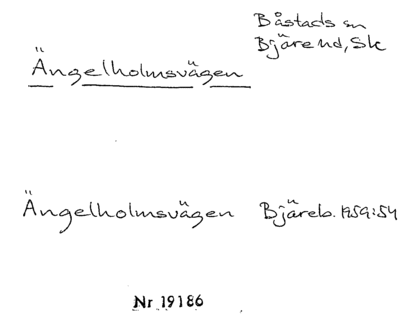 Båstads sn
Bjäre hd, Sk
Ängelholmsvägen
Ängelholmsvägen Bjäreb. 1959:54
Nr 19186